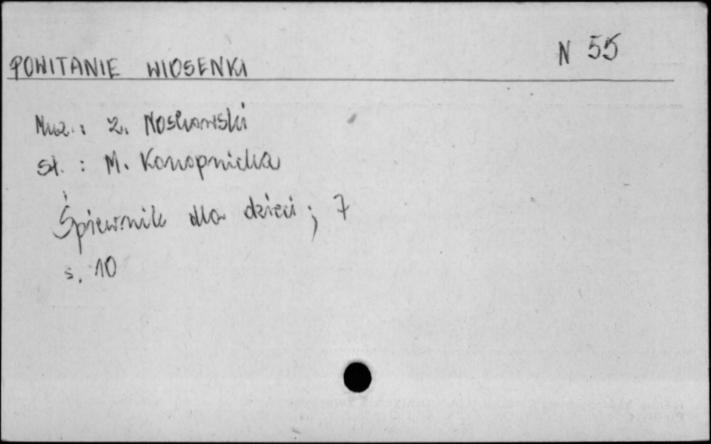 N 55
POWITANIE WIOSENKI
Muz.: Z. Noskowski
Sł. : M. Konopnicka
Śpiewnik dla dzieci ; 7
s. 10